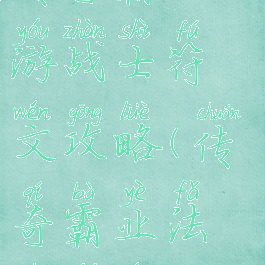 yóu zhàn shì fú
游战士符
wén gōng lüè chuán
文攻略(传
qí bà yè fǎ
奇霸业法